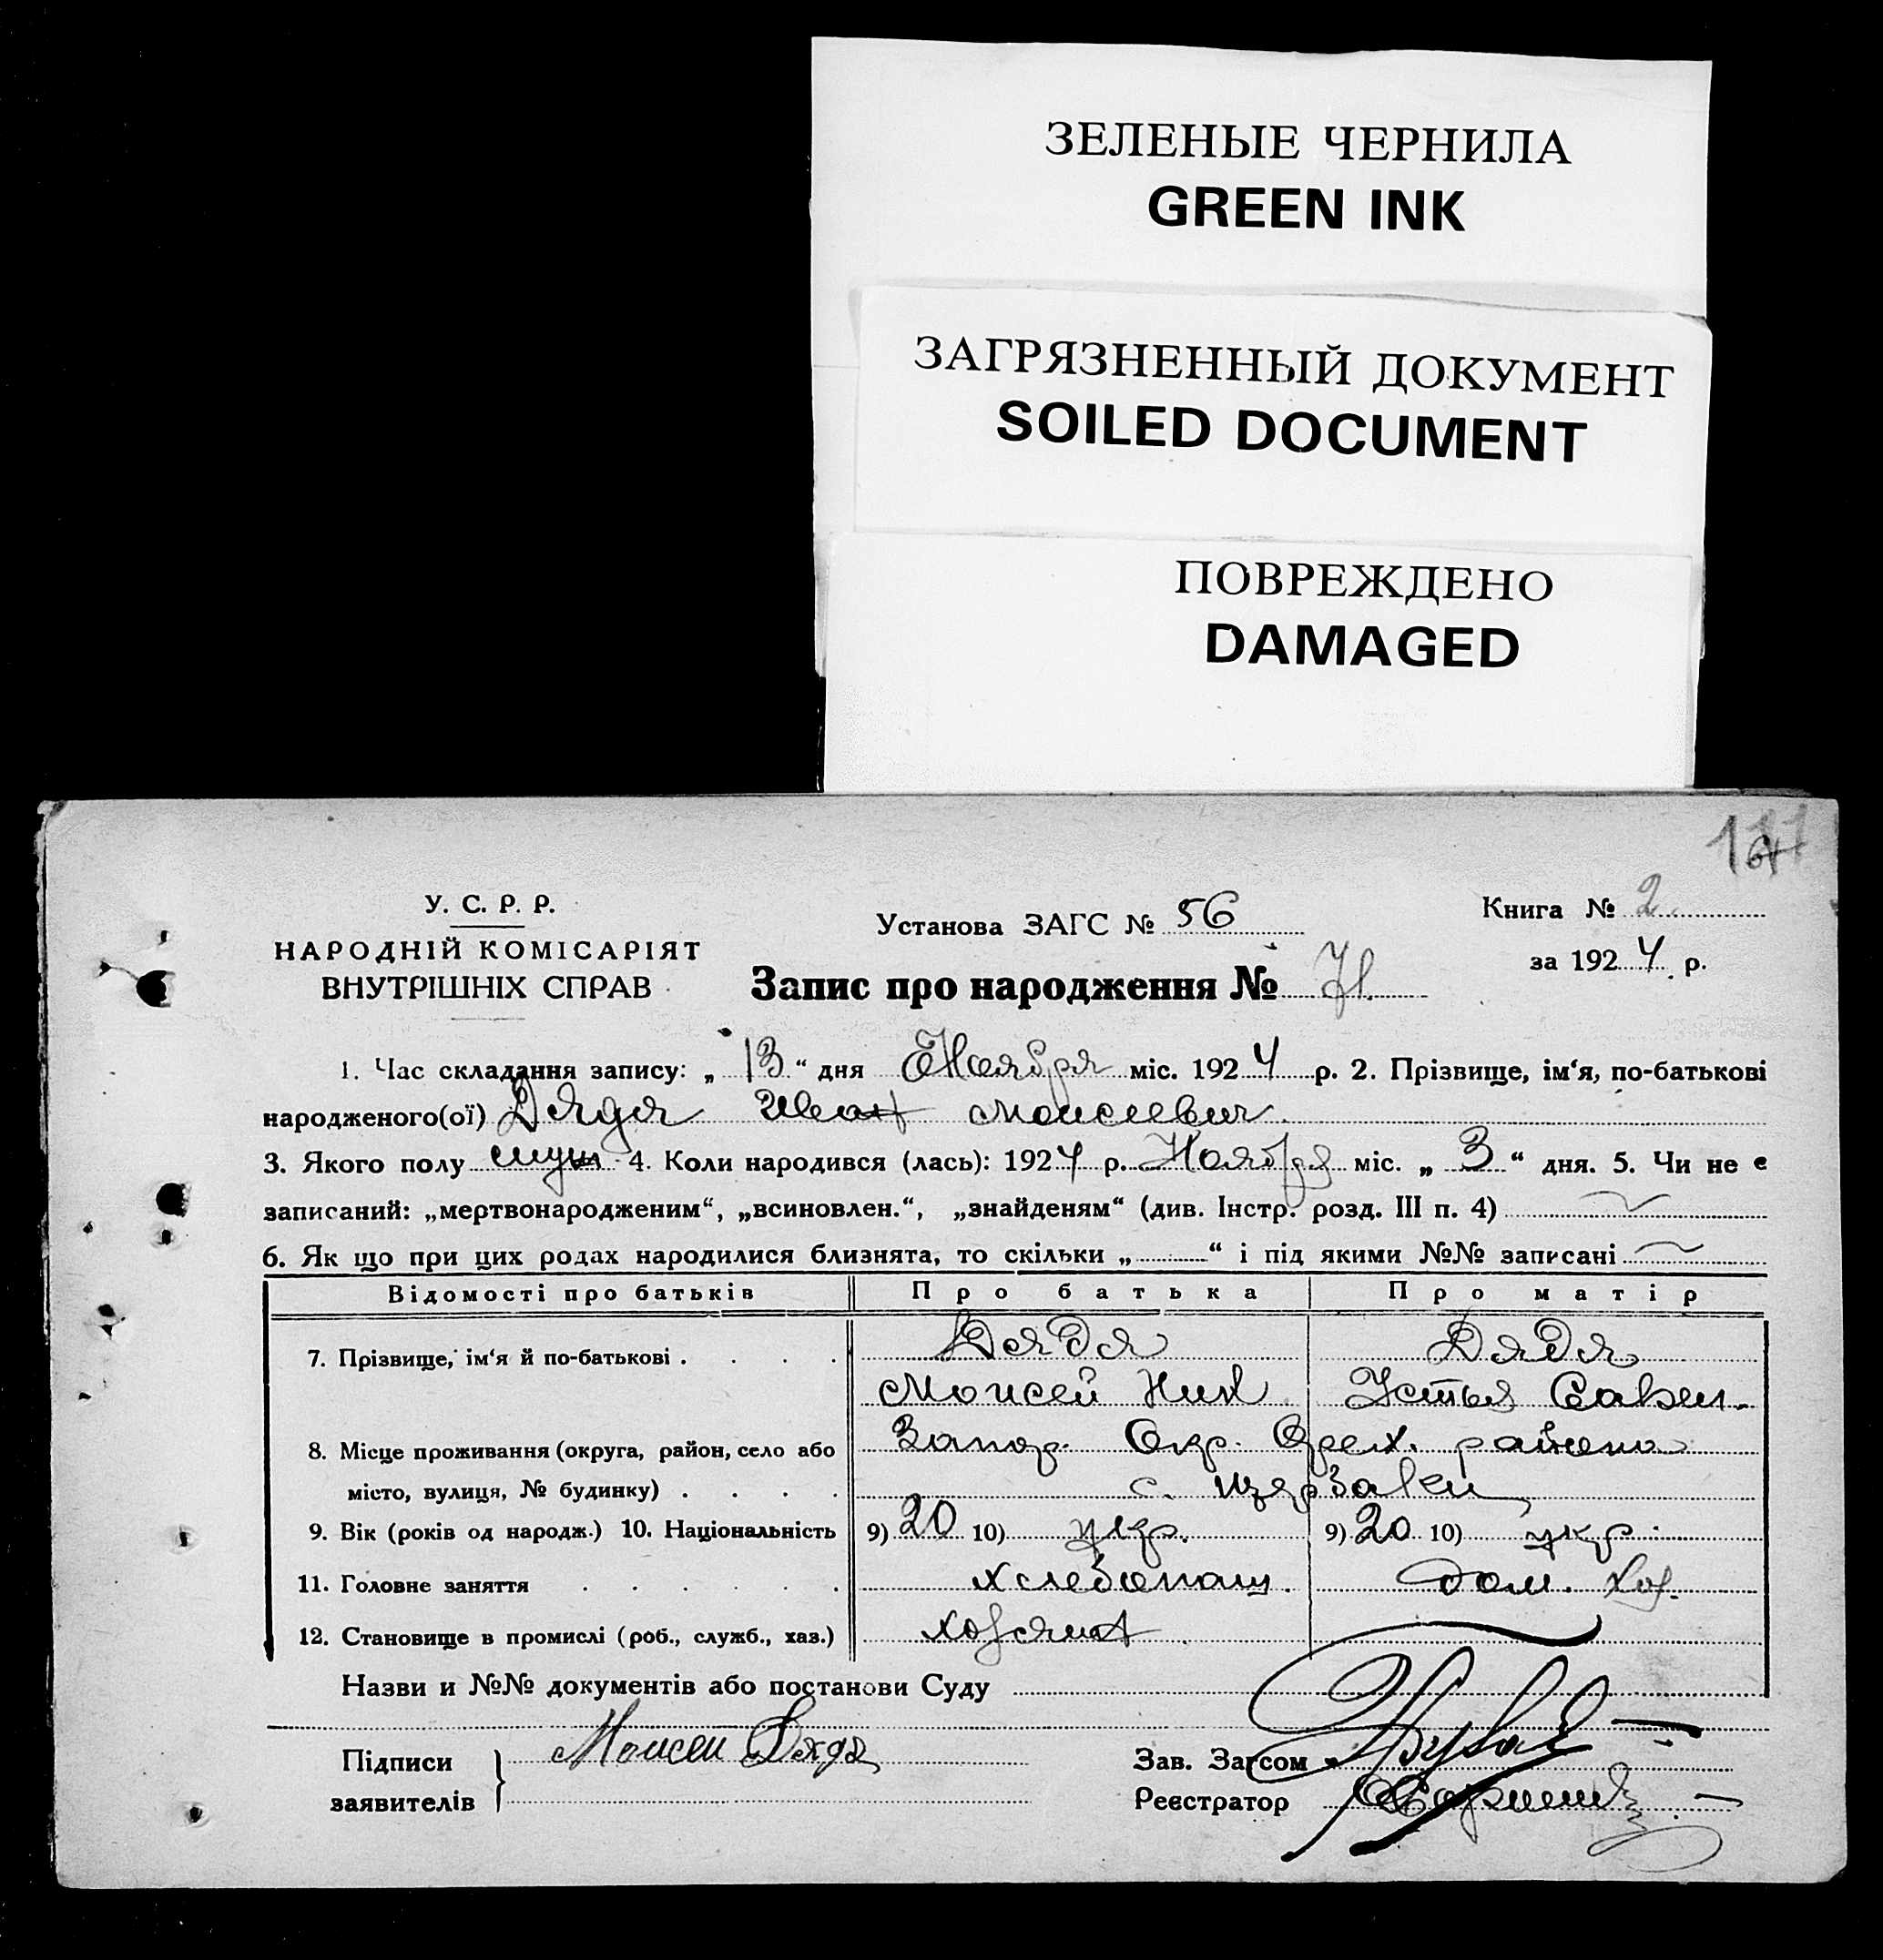 ЗЕЛЕНЫЕ ЧЕРНИЛА
GREEN INK
ЗАГРЯЗНЕННЫЙ ДОКУМЕНТ
SOILED DOCUMENT
ПОВРЕЖДЕНО
DAMAGED
У. С. Р. Р.
НАРОДНІЙ КОМІСАРІЯТ
ВНУТРІШНІХ СПРАВ
Установа ЗАГС № 56
Книга № 2
за 1924 р.
Запис про народження №
1. Час складання запису: „ 13 “ дня Ноября міс. 1924 р. 2. Прізвище, ім‘я, по-батькові
народженого(ої) Дядя Иван Моисеевич
3. Якого полу муж 4. Коли народився (лась): 1924 р. Ноября міс. „ 3 “ дня. 5. Чи не є
записаний: „мертвонародженим“, „всиновлен.“, „знайденям“ (див. Інстр. розд. III п. 4)
6. Як що при цих родах народилися близнята, то скільки „ “ і під якими №№ записані
Відомості про батьків Про батька Про матір
7. Прізвище, ім‘я й по-батькові . . . . Дядя Дядя
Моисей Ник Устья Савел.
8. Місце проживання (округа, район, село або Запор. Окр. Орех. района
місто, вулиця, № будинку) . . . . с.
9. Вік (років од народж.) 10. Національність 9) 20 10) укр. 9) 20 10) укр.
11. Головне заняття . . . . . . хлебопаш. дом. хоз.
12. Становище в промислі (роб., служб., хаз.) хозяин
Назви и №№ документів або постанови Суду
Підписи Моисей Дядя Зав. Загсом
заявителів Реєстратор